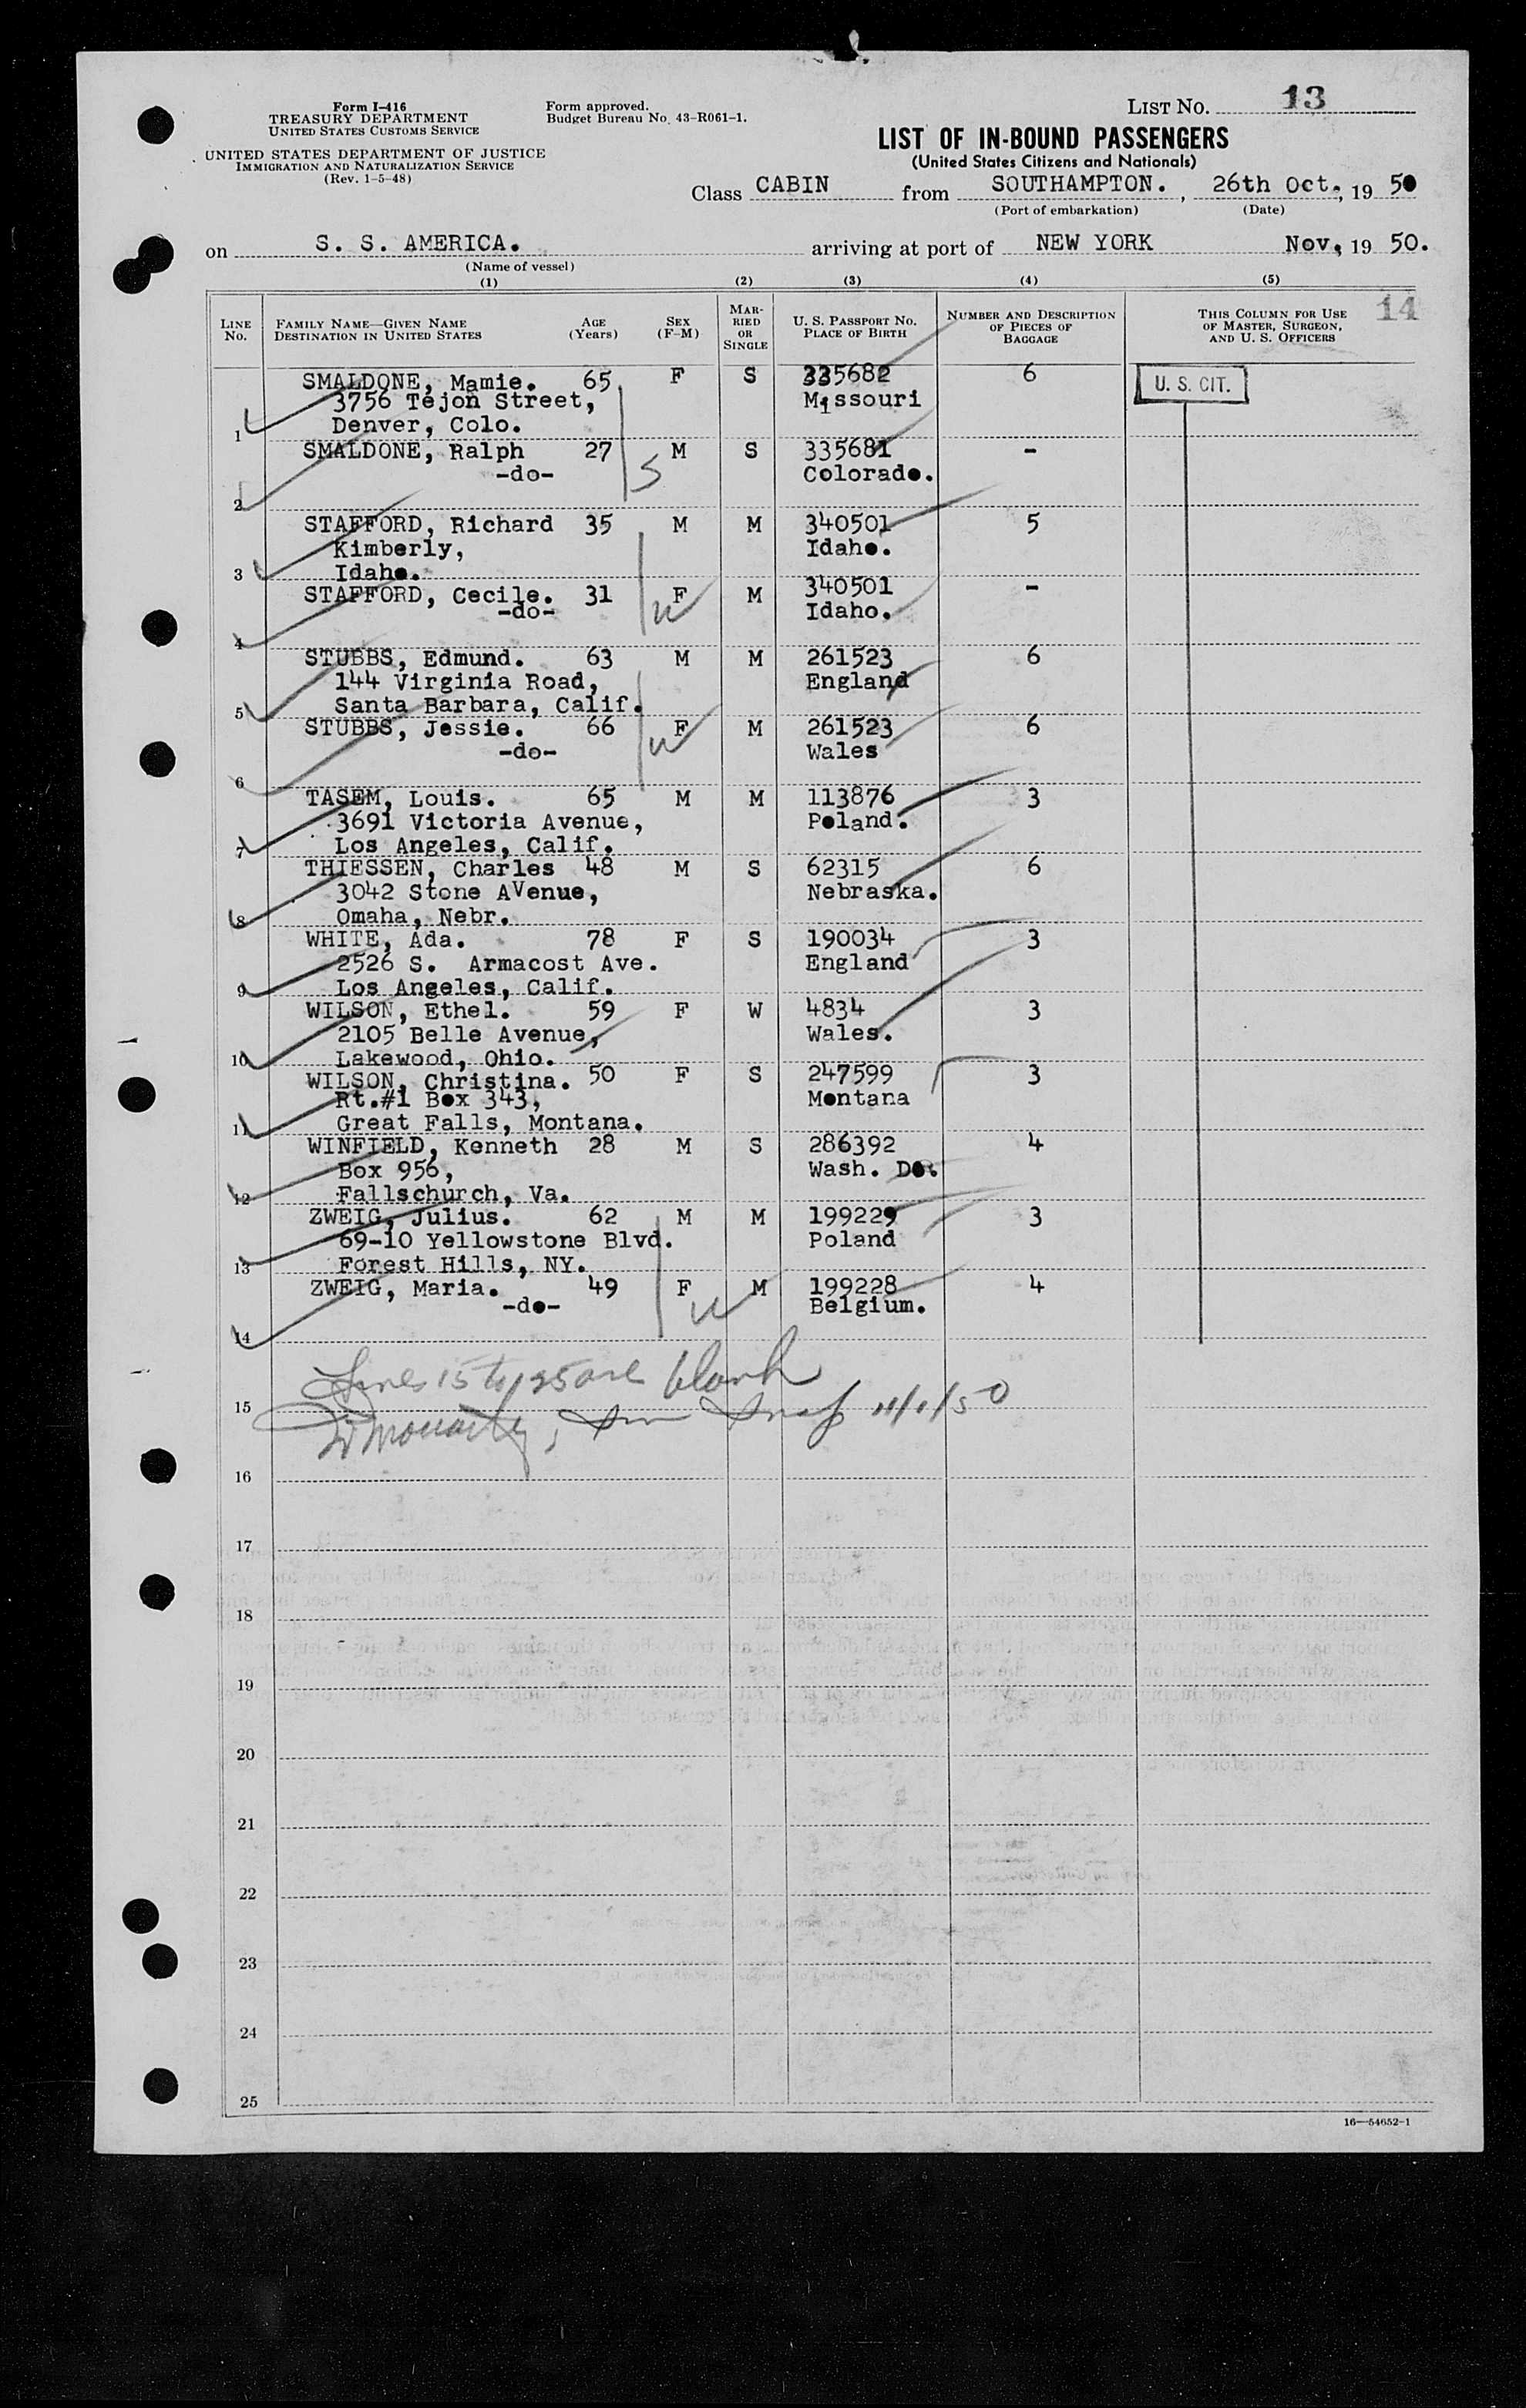 Form I-416
TREASURY DEPARTMENT
UNITED STATES CUSTOMS SERVICE
UNITED STATES DEPARTMENT OF JUSTICE
IMMIGRATION AND NATURALIZATION SERVICE
(Rev. 1-5-48)
Form approved.
Budget Bureau No. 43-R061-1.
LIST No. 13
LIST OF IN-BOUND PASSENGERS
(United States Citizens and Nationals)
Class CABIN from SOUTHAMPTON. , 26th Oct., 19 50
(Port of embarkation) (Date)
on S. S. AMERICA. arriving at port of NEW YORK Nov, 19 50.
(Name of vessel)
(1) (2) (3) (4) (5)
14
LINE No. FAMILY NAME—GIVEN NAME DESTINATION IN UNITED STATES AGE (Years) SEX (F-M) MARRIED OR SINGLE U. S. PASSPORT No. PLACE OF BIRTH NUMBER AND DESCRIPTION OF PIECES OF BAGGAGE THIS COLUMN FOR USE OF MASTER, SURGEON, AND U. S. OFFICERS
SMALDONE, Mamie. 65 F S 335682 6 U. S. CIT.
3756 Tejon Street, Missouri
1 Denver, Colo.
SMALDONE, Ralph 27 M S 335681 -
-do- S Colorado.
2
STAFFORD, Richard 35 M M 340501 5
Kimberly, Idaho.
3 Idaho.
STAFFORD, Cecile. 31 F M 340501 -
-do- Idaho.
4
STUBBS, Edmund. 63 M M 261523 6
144 Virginia Road, England
5 Santa Barbara, Calif.
STUBBS, Jessie. 66 F M 261523 6
-do- Wales
6
TASEM, Louis. 65 M M 113876 3
3691 Victoria Avenue, Poland.
7 Los Angeles, Calif.
THIESSEN, Charles 48 M S 62315 6
3042 Stone AVenue, Nebraska.
8 Omaha, Nebr.
WHITE, Ada. 78 F S 190034 3
2526 S. Armacost Ave. England
9 Los Angeles, Calif.
WILSON, Ethel. 59 F W 4834 3
2105 Belle Avenue, Wales.
10 Lakewood, Ohio.
WILSON, Christina. 50 F S 247599 3
Rt.#1 Box 343, Montana
11 Great Falls, Montana.
WINFIELD, Kenneth 28 M S 286392 4
Box 956, Wash. DC.
12 Fallschurch, Va.
ZWEIG, Julius. 62 M M 199229 3
69-10 Yellowstone Blvd. Poland
13 Forest Hills, NY.
ZWEIG, Maria. 49 F M 199228 4
-do- Belgium.
14
Lines 15 to 25 are blank
15 11/1/50
16
17
18
19
20
21
22
23
24
25
16—54652-1